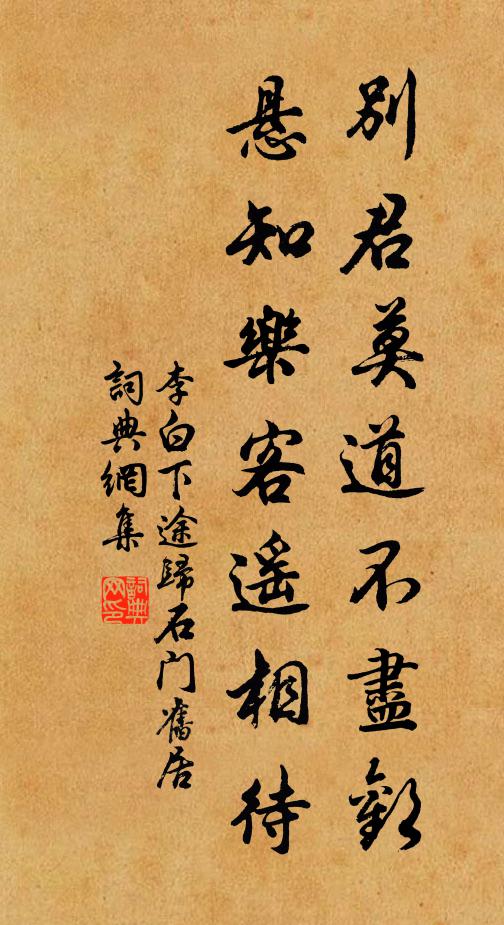 別君莫道不盡歡
悬知樂客遥相待
李白下途歸石门舊居
詞典網集
詞典网印